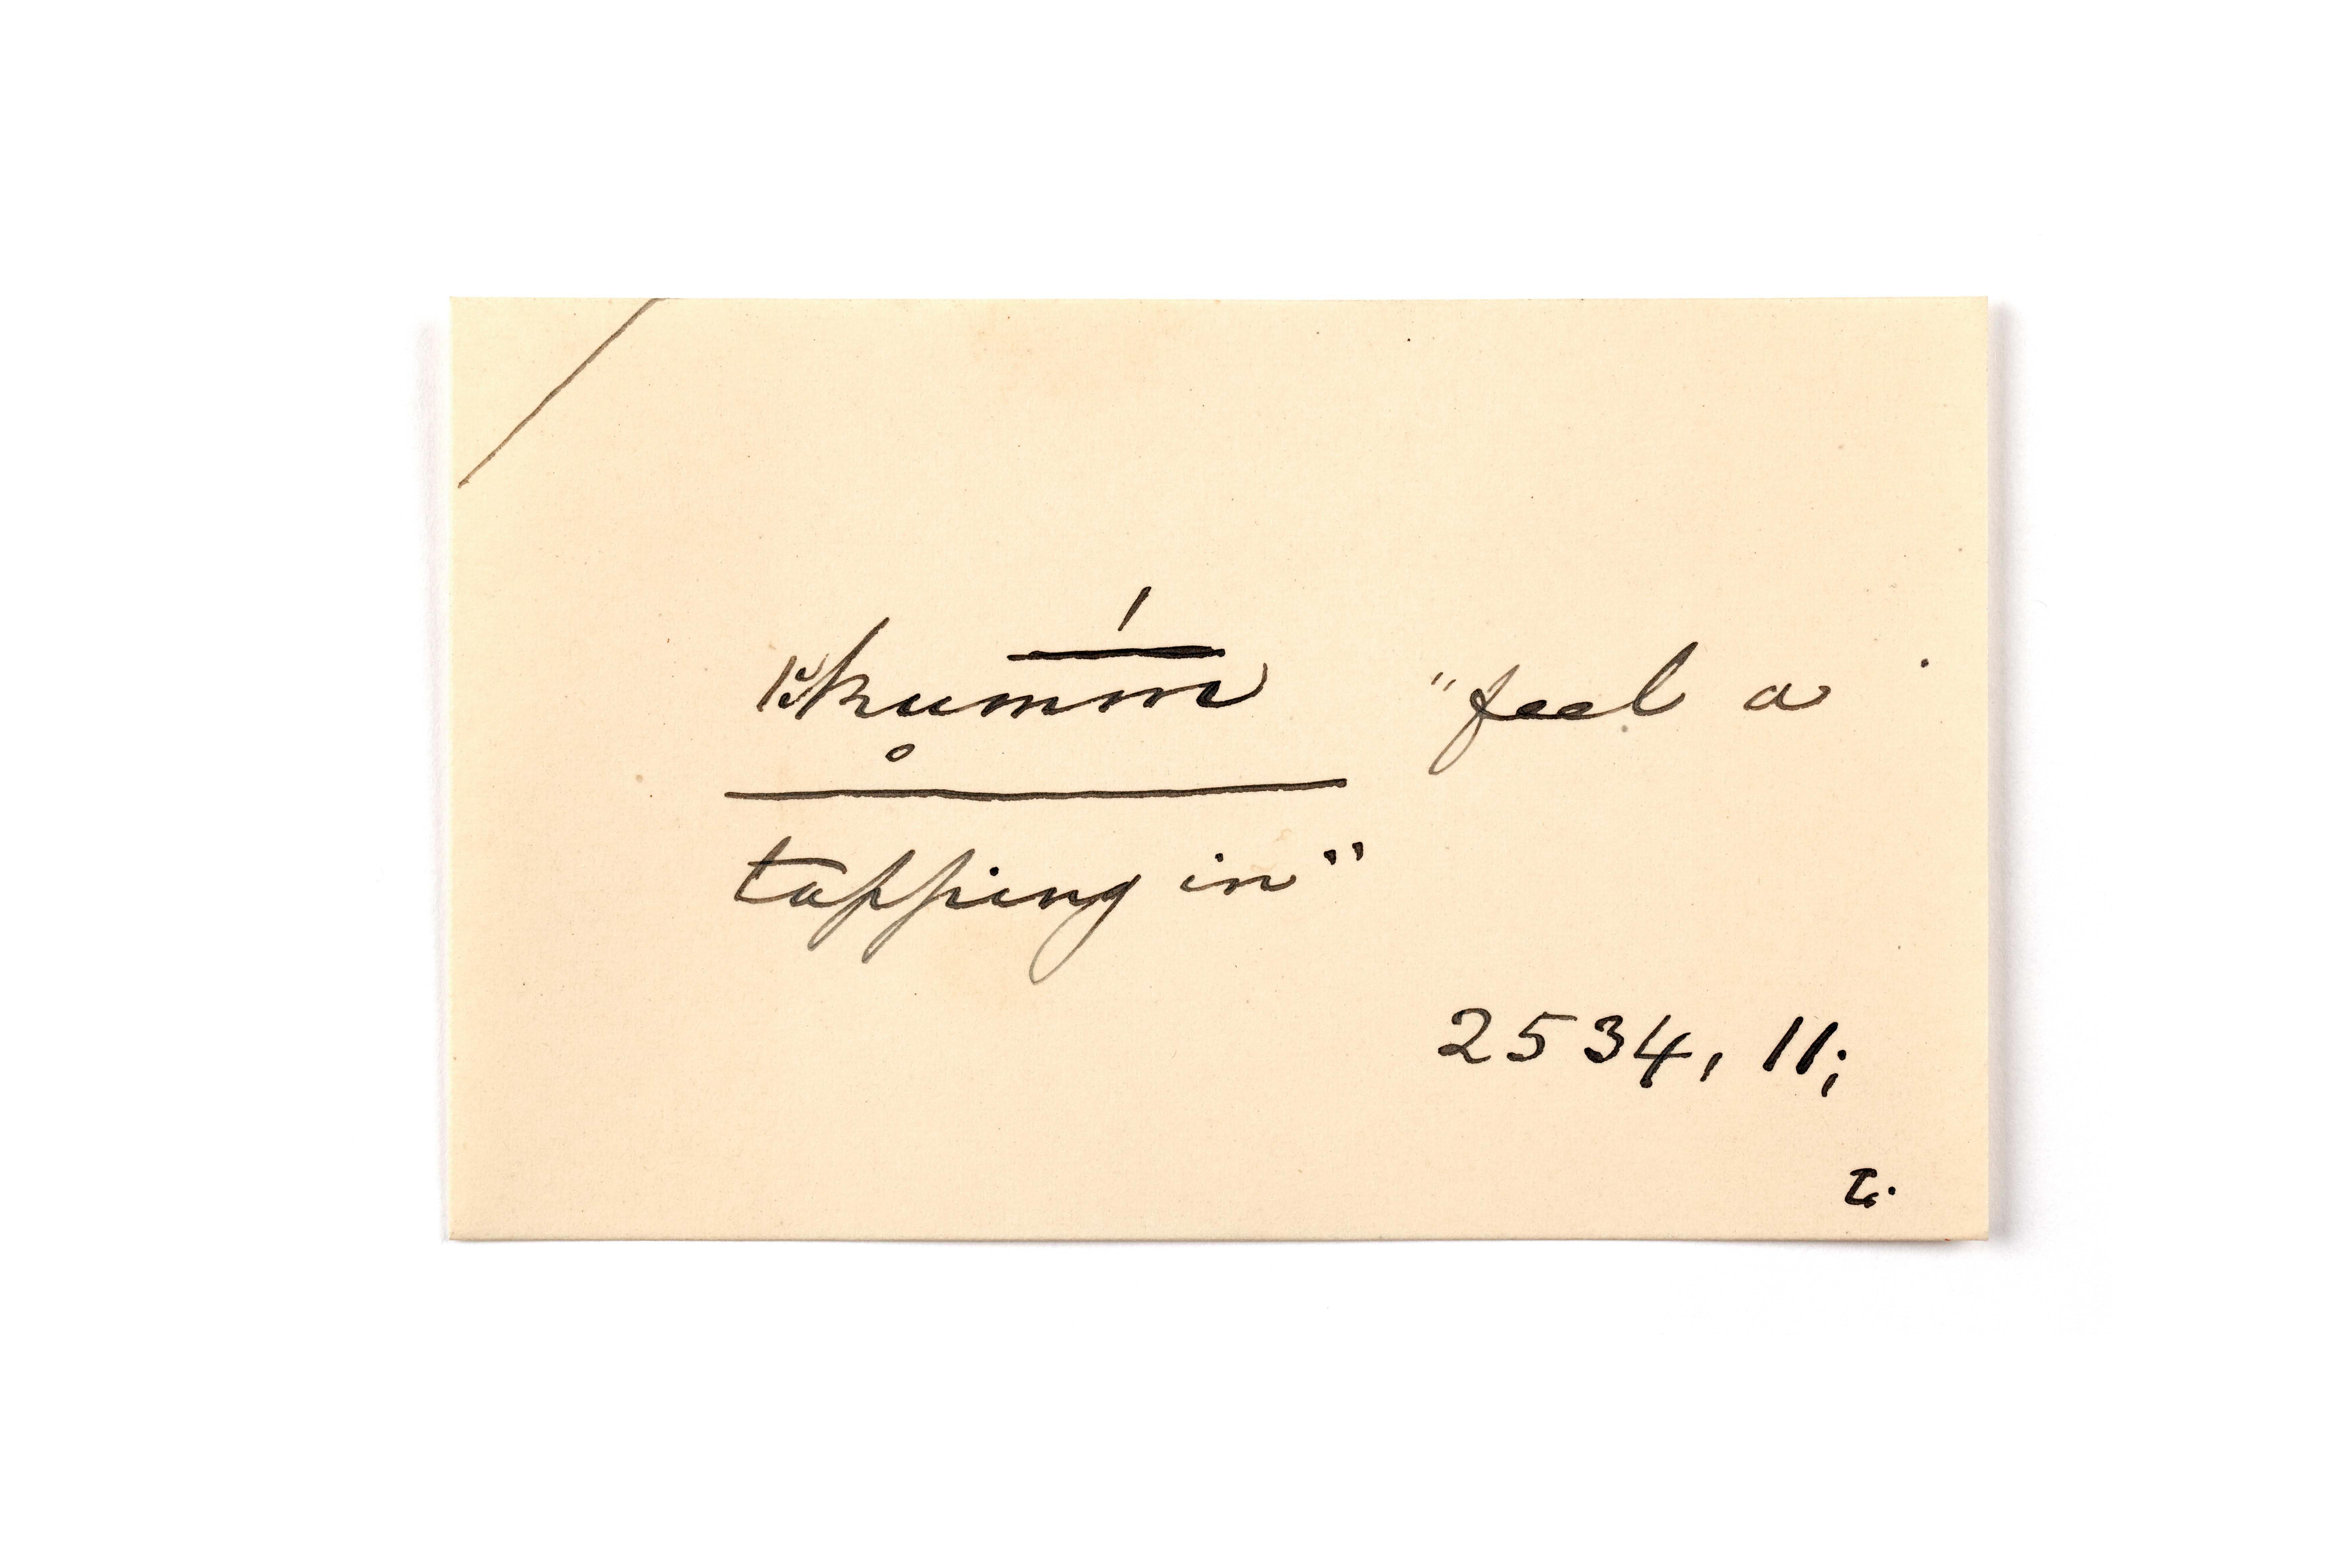 ǃkumm̄́ "feel a
tapping in"
2534, 11;